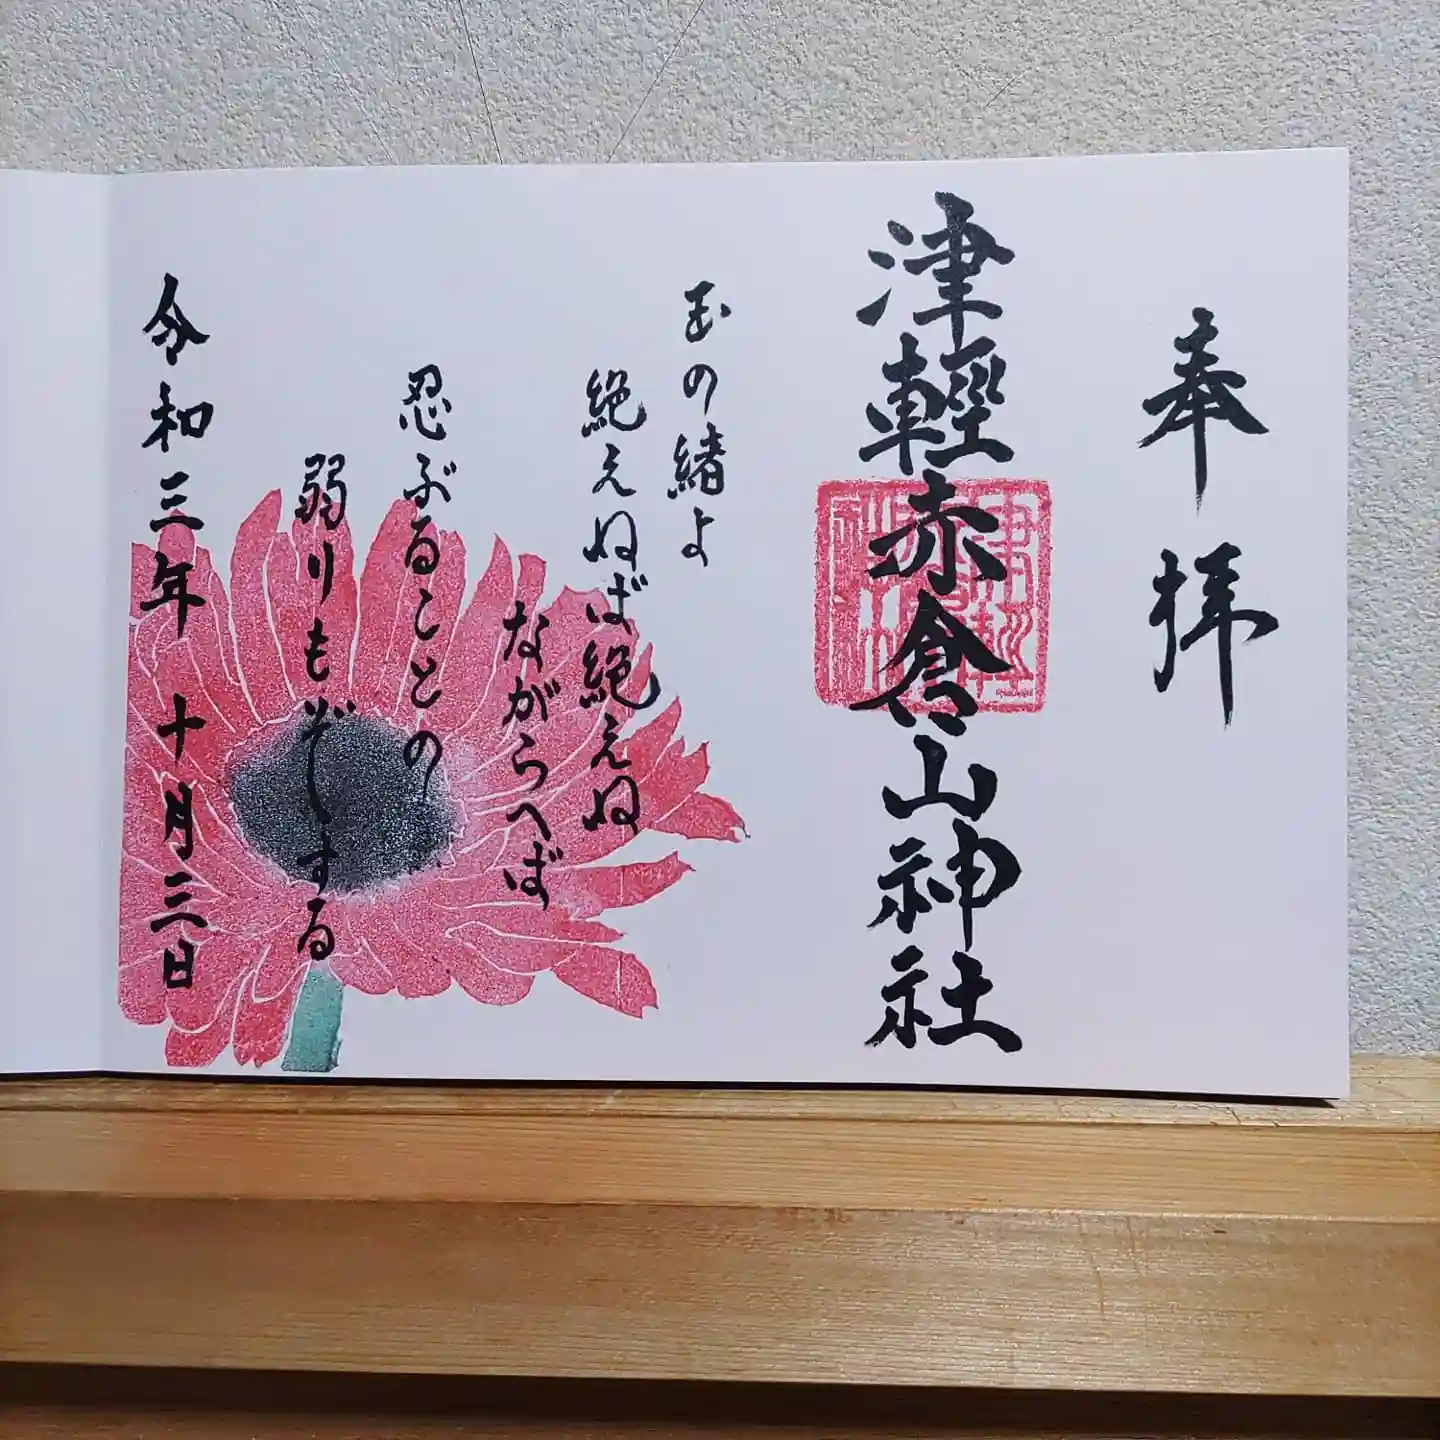 奉拝
津輕赤倉山神社
玉の緒よ
絶えねば絶えね
ながらへば
忍ぶることの
弱りもぞする
令和三年十月三日